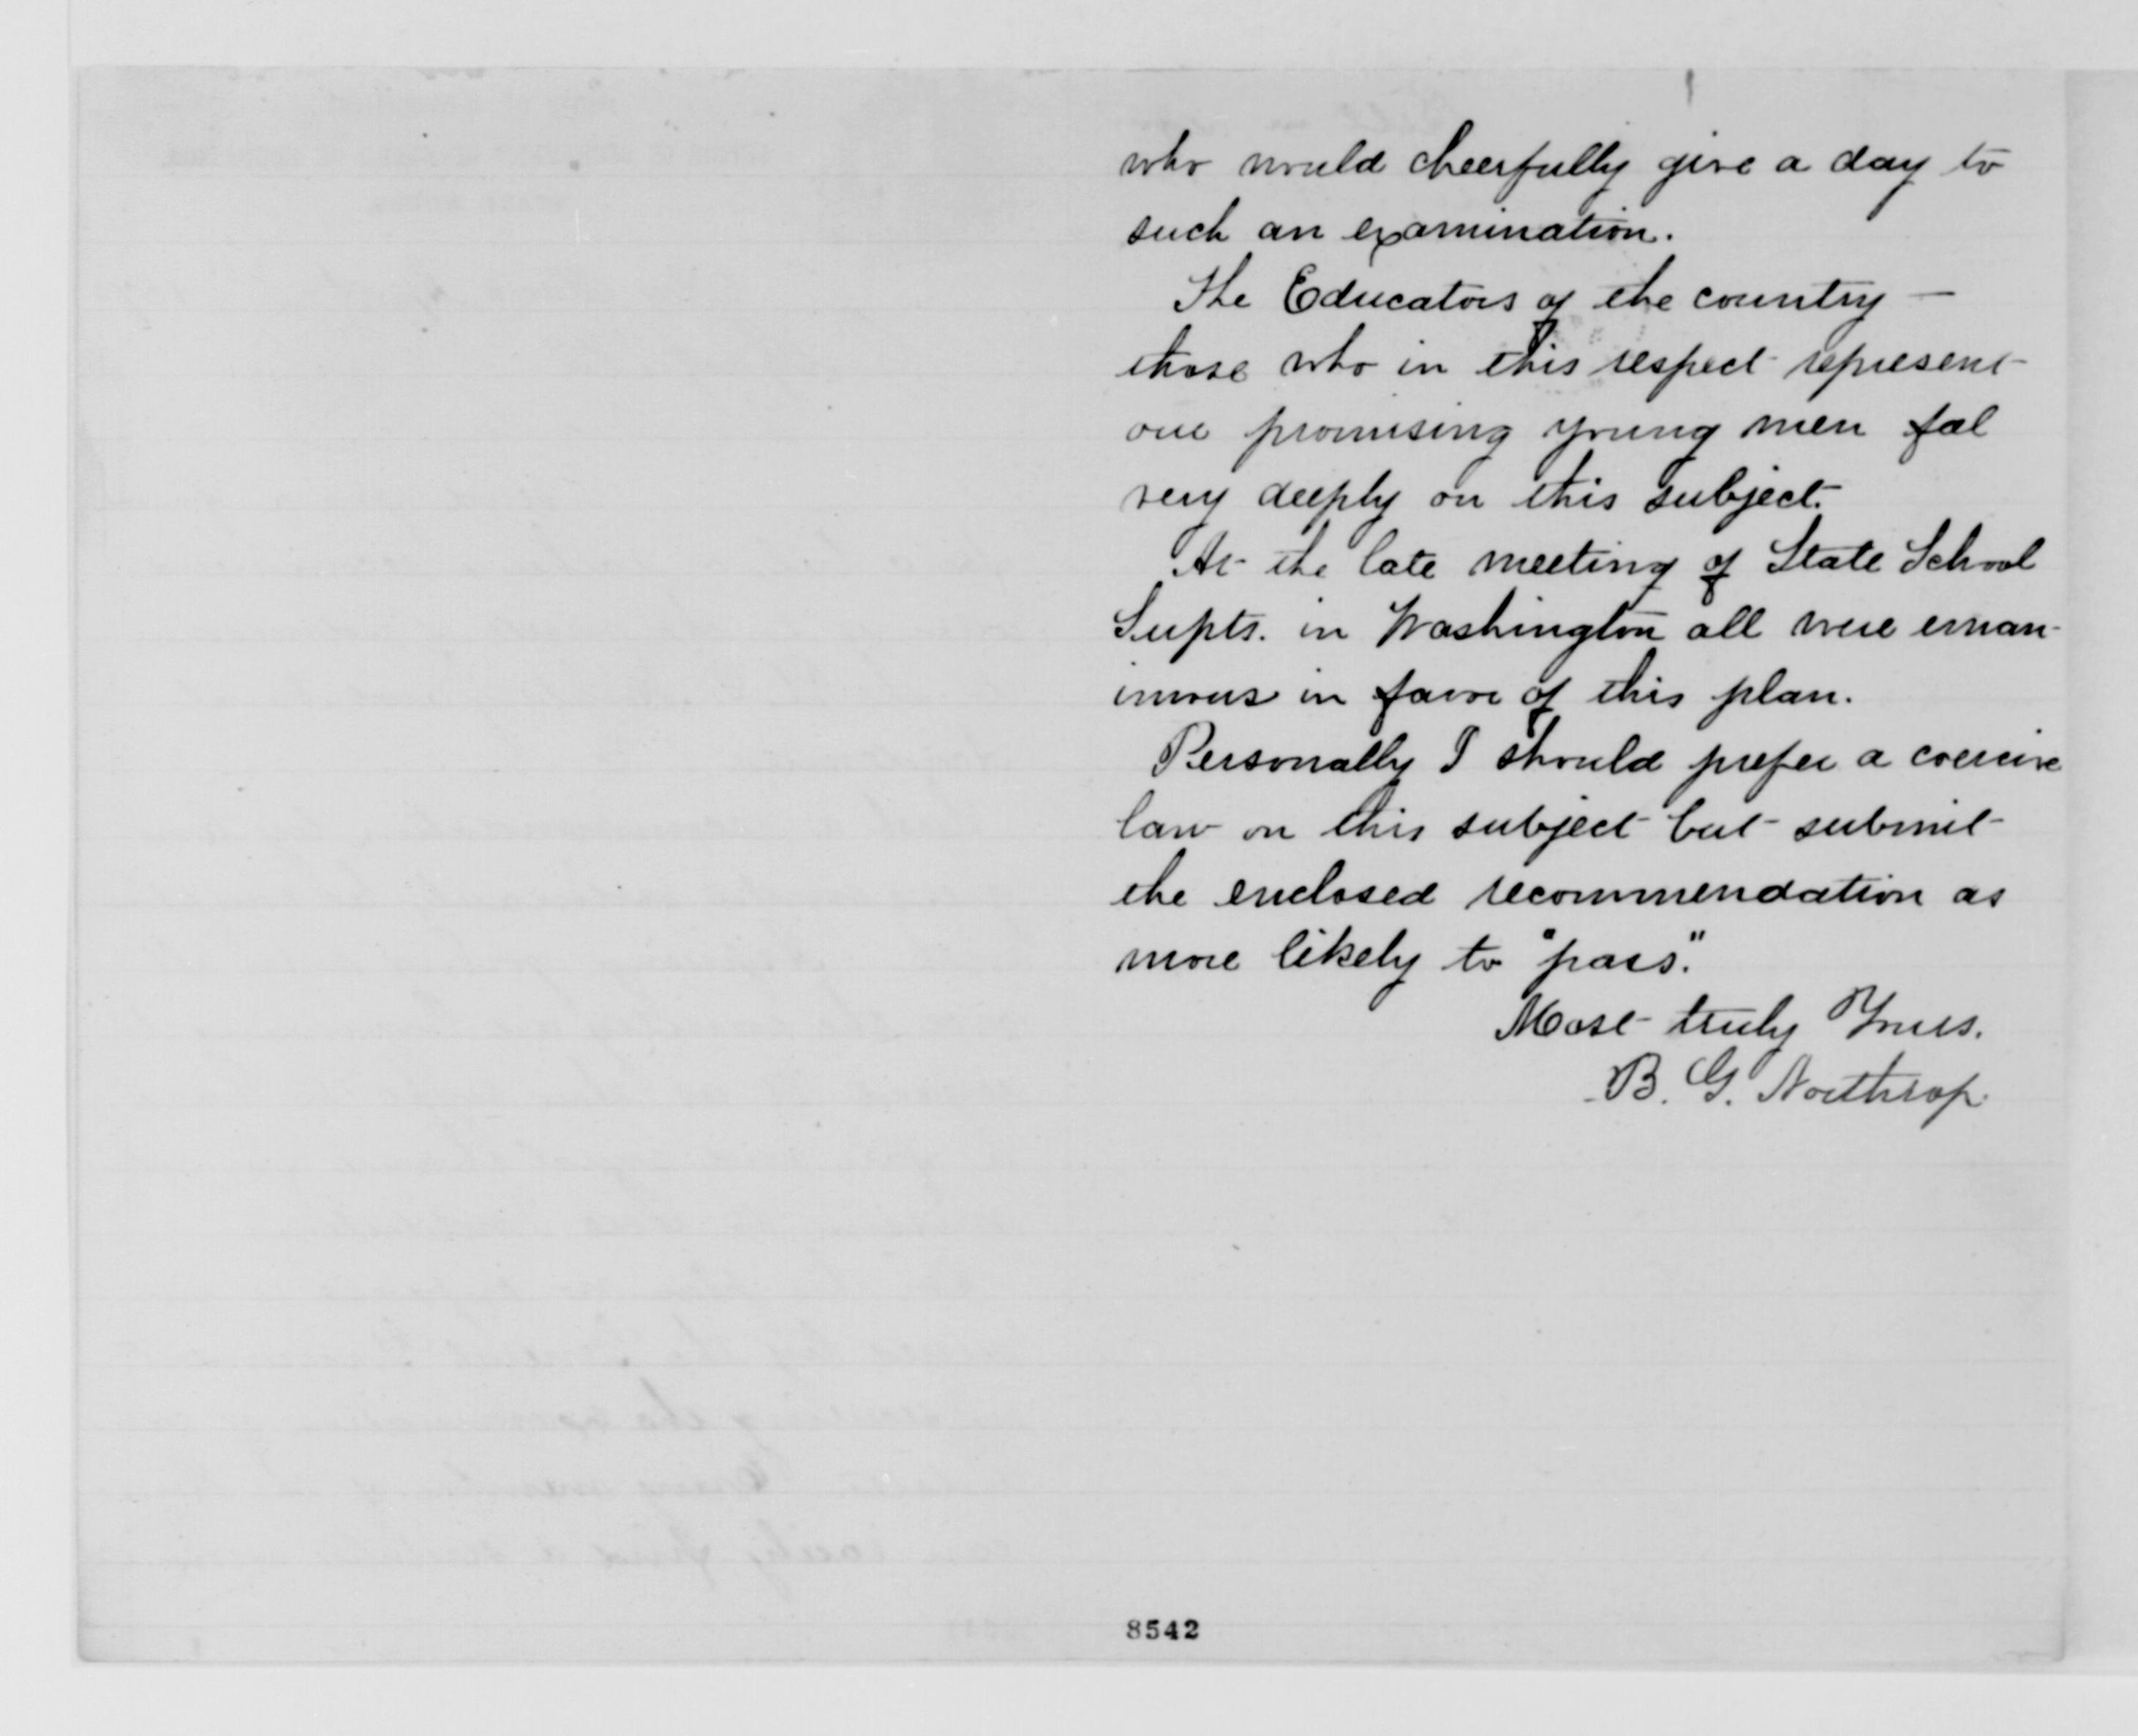 who would cheerfully give a day to
such an examination.
The Educators of the country —
those who in this respect represent
our promising young men feel
very deeply on this subject.
At the late meeting of State School
Supts. in Washington all were unan-
imous in favor of this plan.
Personally I should prefer a coercive
law on this subject but submit
the enclosed recommendation as
more likely to "pass."
Most truly Yours.
B. G. Northrop.
8542